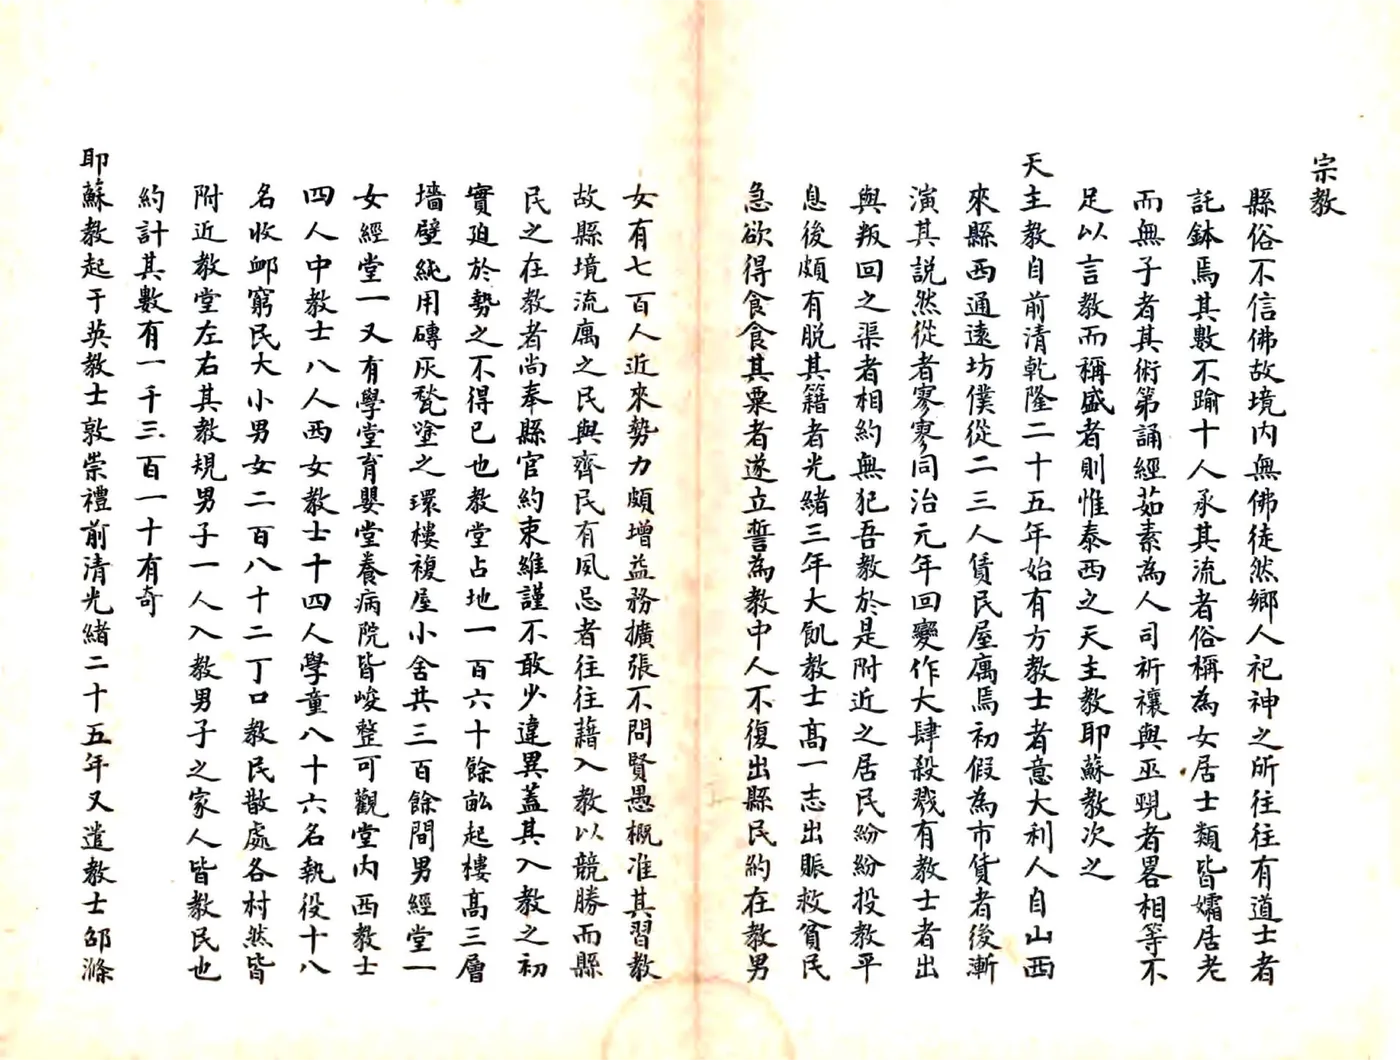 宗教
縣俗不信佛故境内無佛徒然鄉人祀神之所往往有道士者
託鉢焉其數不踰十人承其流者俗稱為女居士類皆孀居老
而無子者其術第誦經茹素為人司祈禳與巫覡者畧相等不
足以言教而稱盛者則惟泰西之天主教耶蘇教次之
天主教自前清乾隆二十五年始有方教士者意大利人自山西
來縣西通遠坊僕從二三人賃民屋寓焉初假為市賃者後漸
演其説然從者寥寥同治元年回變作大肆殺戮有教士者出
與叛回之渠者相約無犯吾教於是附近之居民紛紛投教平
息後頗有脱其籍者光緒三年大飢教士高一志出賑救貧民
急欲得食食其粟者遂立誓為教中人不復出縣民約在教男
女有七百人近來勢力頗增益務擴張不問賢愚概准其習教
故縣境流寓之民與齊民有夙忌者往往藉入教以競勝而縣
民之在教者尚奉縣官約束維謹不敢少違異蓋其入教之初
實廹於勢之不得已也教堂占地一百六十餘畝起樓高三層
墻壁純用磚灰甃塗之環樓複屋小舍共三百餘間男經堂一
女經堂一又有學堂育嬰堂養病院皆峻整可觀堂内西教士
四人中教士八人西女教士十四人學童八十六名執役十八
名收卹窮民大小男女二百八十二丁口教民散處各村然皆
附近教堂左右其教規男子一人入教男子之家人皆教民也
約計其數有一千三百一十有奇
耶蘇教起于英教士敦崇禮前清光緒二十五年又遣教士邵滌